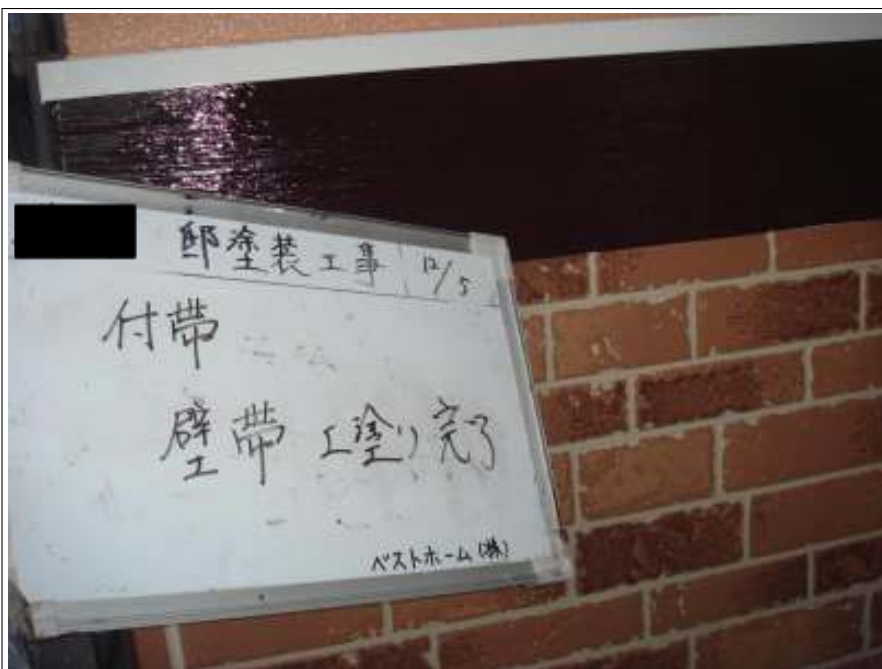 邸塗装工事 12/5
付帯
壁帯 上塗り完了
ベストホーム(株)